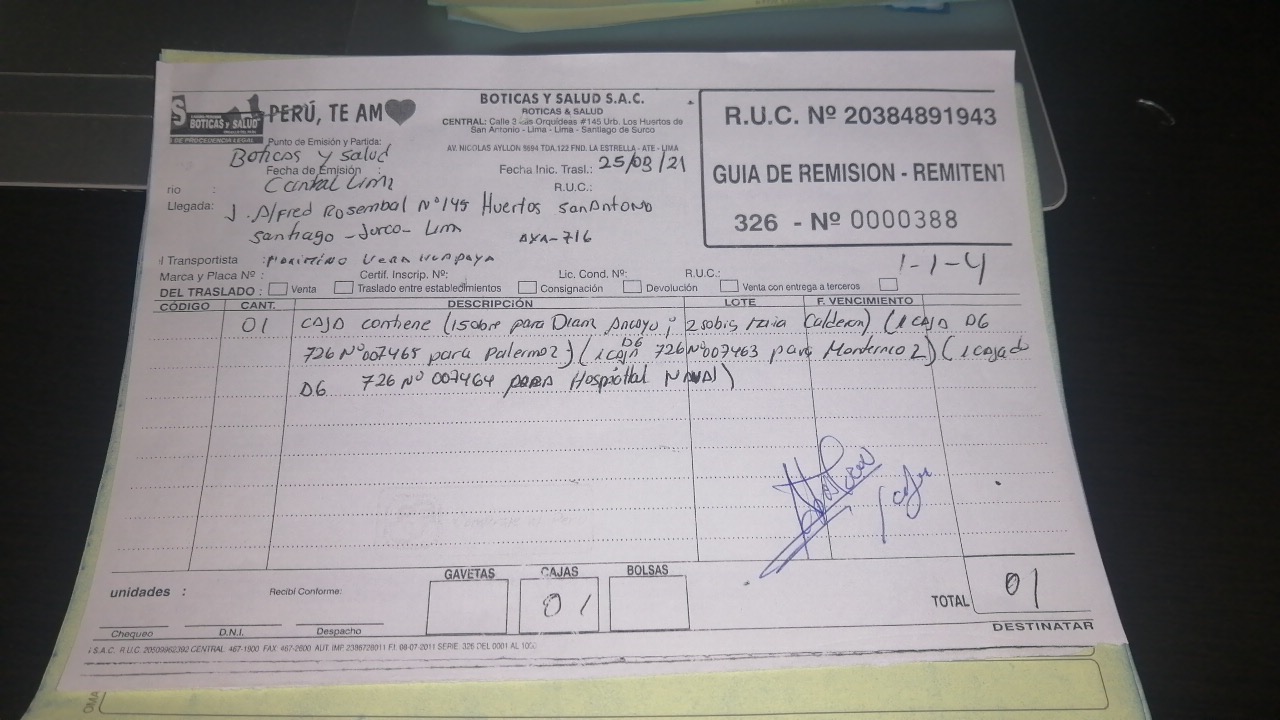 BOTICAS Y SALUD
DE PROCEDENCIA LEGAL
PERÚ, TE AM
BOTICAS Y SALUD S.A.C.
BOTICAS & SALUD
CENTRAL: Calle 3 Las Orquideas #145 Urb. Los Huertos de
San Antonio - Lima - Lima - Santiago de Surco
AV. NICOLAS AYLLON 5694 TDA.122 FND. LA ESTRELLA - ATE - LIMA
R.U.C. Nº 20384891943
GUIA DE REMISION - REMITENT
326 - Nº 0000388
Punto de Emisión y Partida:
Boticas y salud
Fecha de Emisión
Fecha Inic. Trasl.: 25/03/21
Lima
rio :
R.U.C.:
Llegada: J. Alfred Rosembal Nº145 Huertos San Antono
Santiago - Surco - Lim
AXA-716
l Transportista :
Marca y Placa Nº : Certif. Inscrip. Nº: Lic. Cond. Nº: R.U.C.:
1-1-4
DEL TRASLADO : Venta Traslado entre establecimientos Consignación Devolución Venta con entrega a terceros
CÓDIGO CANT. DESCRIPCIÓN LOTE F. VENCIMIENTO
01 CAJA contiene (1 sobre para Diam ; 2 sobis Calderon) (1 CAJA D6
726 Nº007465 para Palermo2) (1 caja D6 726 Nº007463 para Monterrico 2) (1 caja
D6 726 Nº 007464 para Hospital Naval)
unidades :
Recibí Conforme:
GAVETAS CAJAS BOLSAS
01
TOTAL 01
Chequeo D.N.I. Despacho
DESTINATAR
S.A.C. R.U.C. 20509962392 CENTRAL: 467-1900 FAX: 467-2600 AUT. IMP. 2386726011 F.I. 08-07-2011 SERIE: 326 DEL 0001 AL